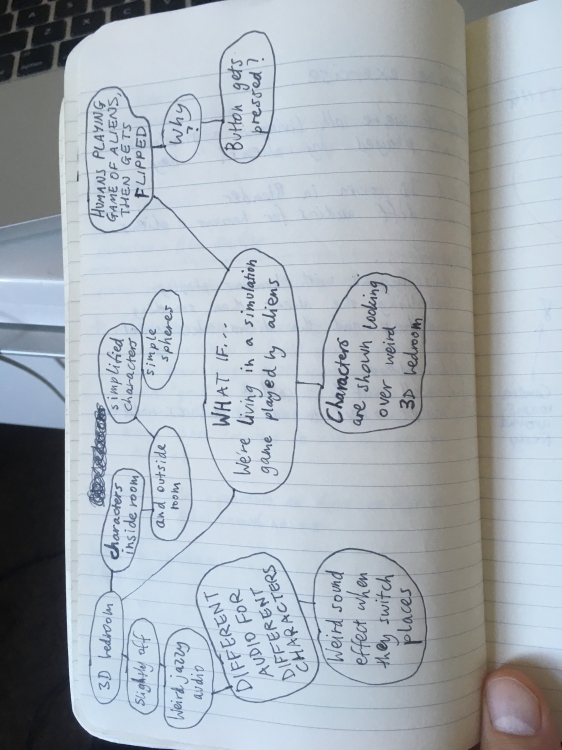 3D bedroom
Slightly off
Weird jazzy
audio
DIFFERENT
AUDIO FOR
DIFFERENT
CHARACTERS
Weird sound
effect when
they switch
places
characters
inside room
and outside
room
simplified
characters
simple
spheres
HUMANS PLAYING
GAME OF ALIENS,
THEN GETS
FLIPPED
Why
?
Button gets
pressed?
WHAT IF...
We're living in a simulation
game played by aliens
Characters
are shown looking
over weird
3D bedroom